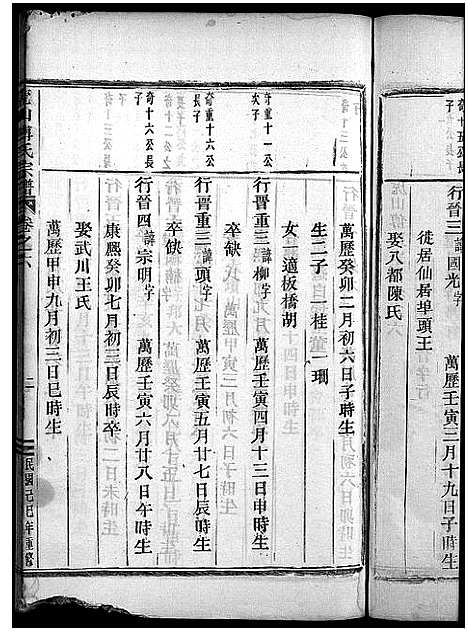 奇十五公長子
行晉三諱國光字 萬歷壬寅三月十九日子時生
徙居仙居埠頭王
娶八都陳氏
萬歷癸卯二月初六日子時生
生二子 一桂 一珊
女一適板橋胡
奇重十一公次子
行晉重三諱柳字 萬歷壬寅四月十三日申時生
卒缺
奇重十六公長子
行晉重三諱頭字 萬歷壬寅五月廿七日辰時生
卒缺
奇十六公長子
行晉四諱宗明字 萬歷壬寅六月廿八日午時生
康熙癸卯七月初三日辰時卒
娶武川王氏
萬歷甲申九月初三日巳時生
山傅氏宗譜 卷之六
民國己巳年重修